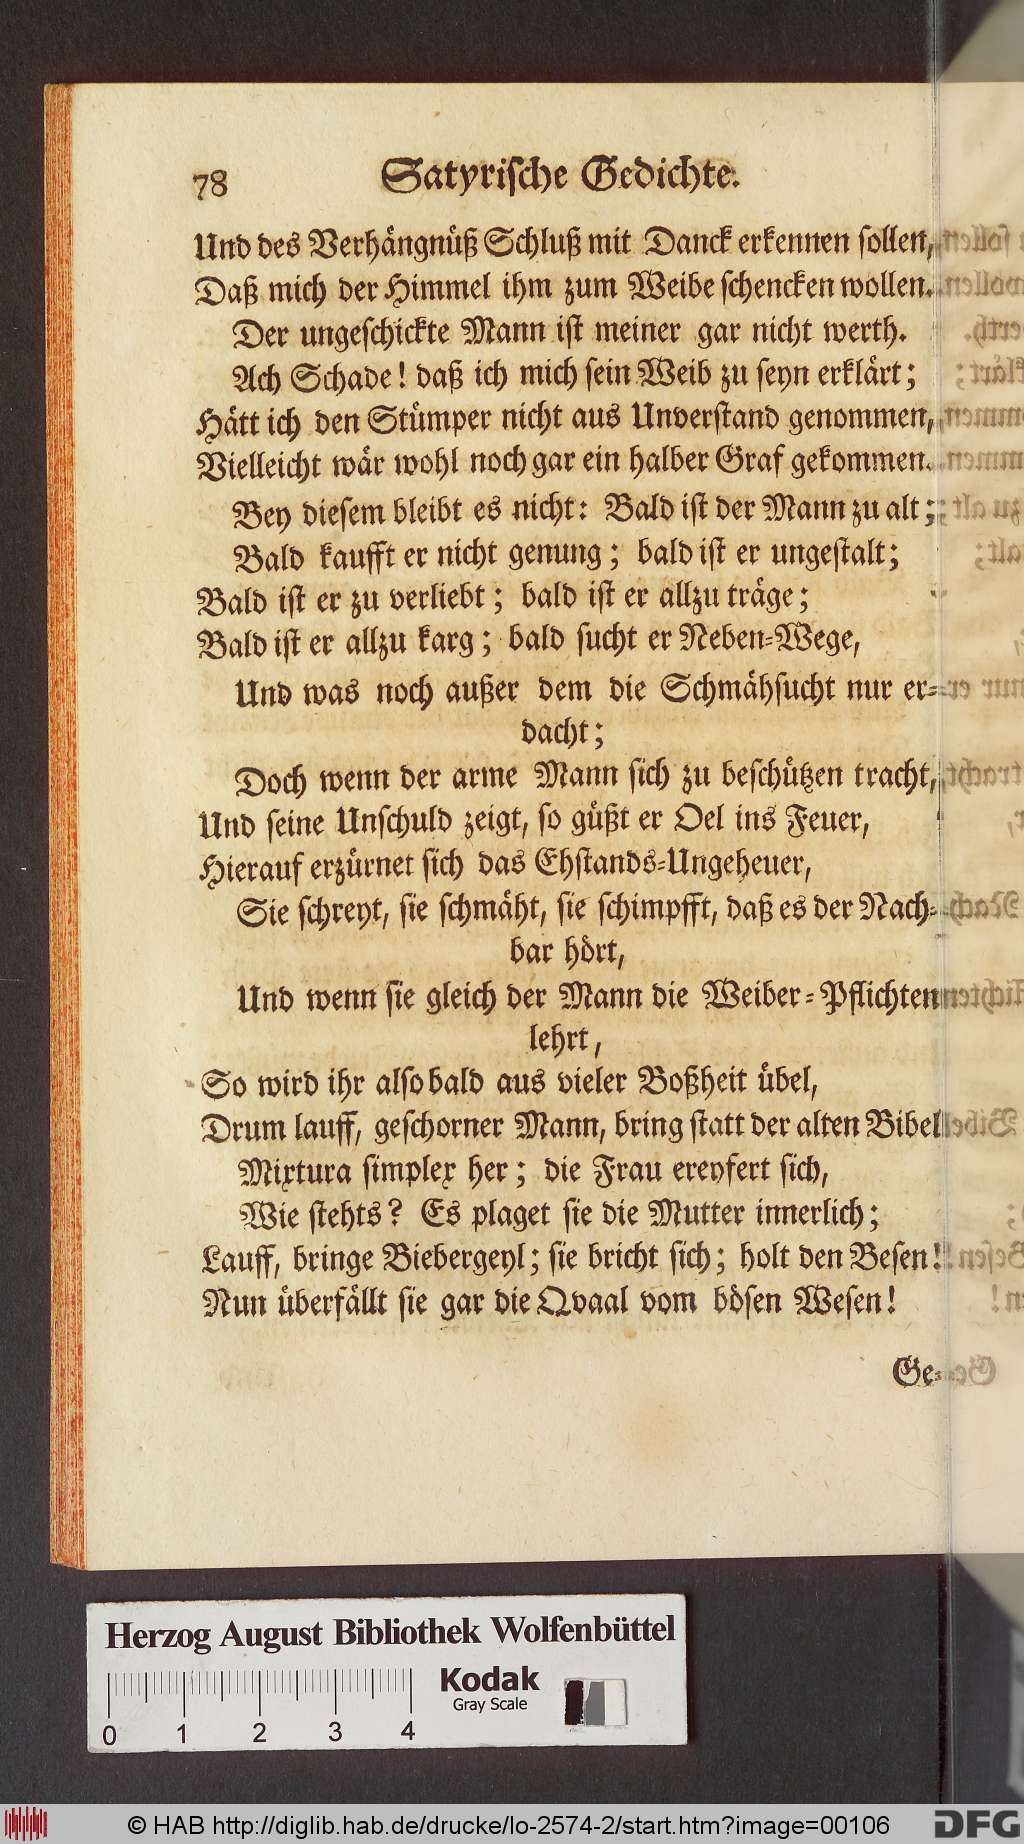 78 Satyrische Gedichte.
Und des Verhängnüß Schluß mit Danck erkennen sollen,
Daß mich der Himmel ihm zum Weibe schencken wollen.
Der ungeschickte Mann ist meiner gar nicht werth.
Ach Schade! daß ich mich sein Weib zu seyn erklärt;
Hätt ich den Stümper nicht aus Unverstand genommen,
Vielleicht wär wohl noch gar ein halber Graf gekommen.
Bey diesem bleibt es nicht: Bald ist der Mann zu alt;
Bald kaufft er nicht genung; bald ist er ungestalt;
Bald ist er zu verliebt; bald ist er allzu träge;
Bald ist er allzu karg; bald sucht er Neben-Wege,
Und was noch außer dem die Schmähsucht nur er-
dacht;
Doch wenn der arme Mann sich zu beschützen tracht,
Und seine Unschuld zeigt, so güßt er Oel ins Feuer,
Hierauf erzürnet sich das Ehstands-Ungeheuer,
Sie schreyt, sie schmäht, sie schimpfft, daß es der Nach-
bar hört,
Und wenn sie gleich der Mann die Weiber-Pflichten
lehrt,
So wird ihr alsobald aus vieler Boßheit übel,
Drum lauff, geschorner Mann, bring statt der alten Bibel
Mixtura simplex her; die Frau ereyfert sich,
Wie stehts? Es plaget sie die Mutter innerlich;
Lauff, bringe Biebergeyl; sie bricht sich; holt den Besen!
Nun überfällt sie gar die Qvaal vom bösen Wesen!
Ge-
Herzog August Bibliothek Wolfenbüttel
Kodak
Gray Scale
0 1 2 3 4
© HAB http://diglib.hab.de/drucke/lo-2574-2/start.htm?image=00106
DFG